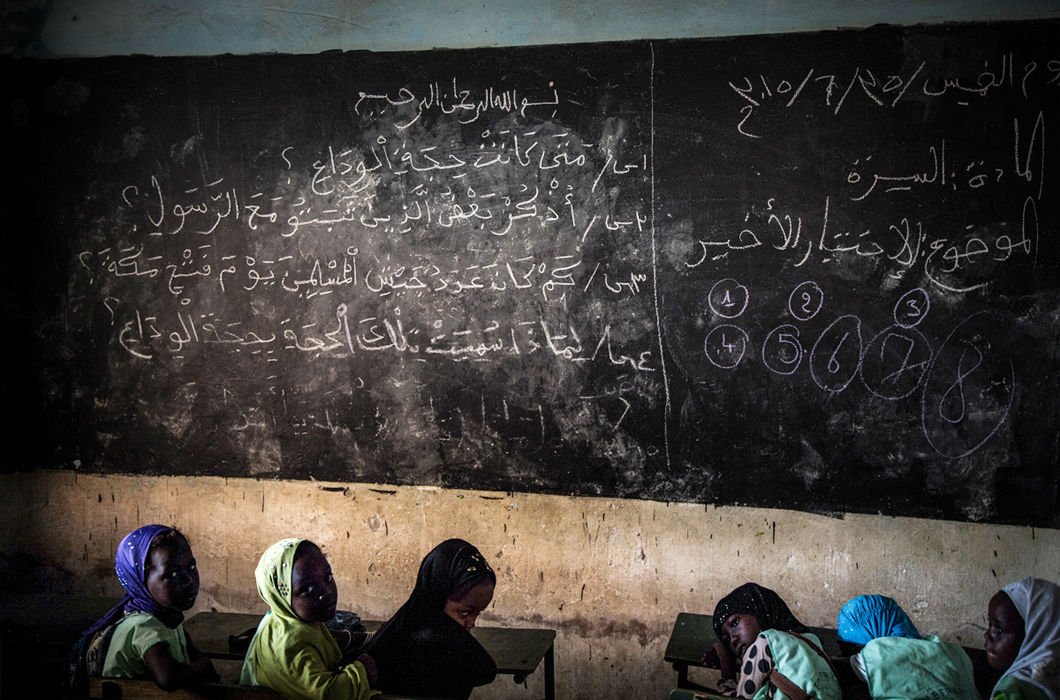 يوم الخميس / ٢٥ / ٦ / ٢٠١٥م
المادة: السيرة
الموضوع: الإختبار الأخير
1 2 3
4 5 6 7 8
بسم الله الرحمن الرحيم
س١/ مَتَى كَانَتْ حِجَةِ الْوِدَاعِ؟
س٢/ أُذْكُرْ بَعْضُ الَّذِينَ ثَبَتُوْ مَعَ الرَّسُولِ؟
س٣/ كَمْ كَانَ عَدَدُ جَيْشِ الْمُسْلِمِينَ يَوْمَ فَتْحِ مَكَّةَ؟
س٤/ لِمَاذَا سُمِيَتْ تِلْكَ الْحِجَةَ بِحِجَةَ الْوِدَاعِ؟